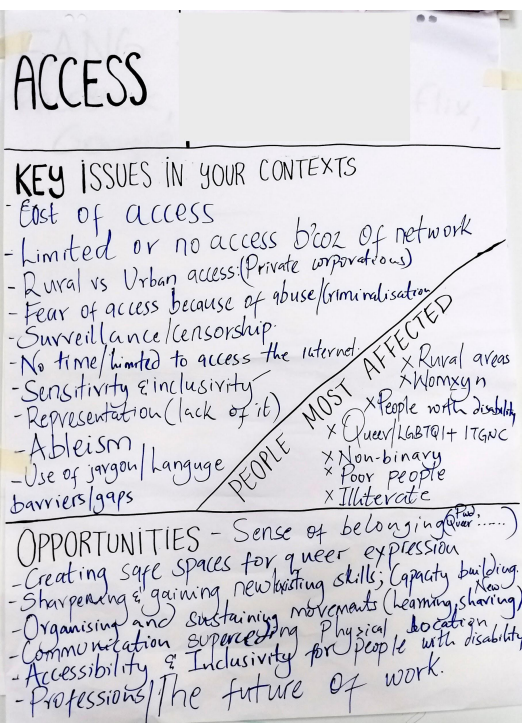 ACCESS
KEY ISSUES IN YOUR CONTEXTS
- Cost of access
- Limited or no access b'coz of network
- Rural vs Urban access:(Private corporations)
- Fear of access because of abuse/Criminalisation
- Surveillance/censorship.
- No time/limited to access the internet.
- Sensitivity & inclusivity
- Representation (lack of it)
- Ableism
- Use of jargon/Language
barriers/gaps
PEOPLE MOST AFFECTED
x Rural areas
x Womxyn
x People with disability
x Queer/LGBTQI+ ITGNC
x Non-binary
x Poor people
x Illiterate
OPPORTUNITIES - Sense of belonging (Pwd, Queer.....)
- Creating safe spaces for queer expression
- Sharpening & gaining new/existing skills; Capacity building.
- Organising and sustaining movements (Learning, New sharing)
- Communication superceding Physical location
- Accessibility & Inclusivity for People with disability
- Professions/The future of work.